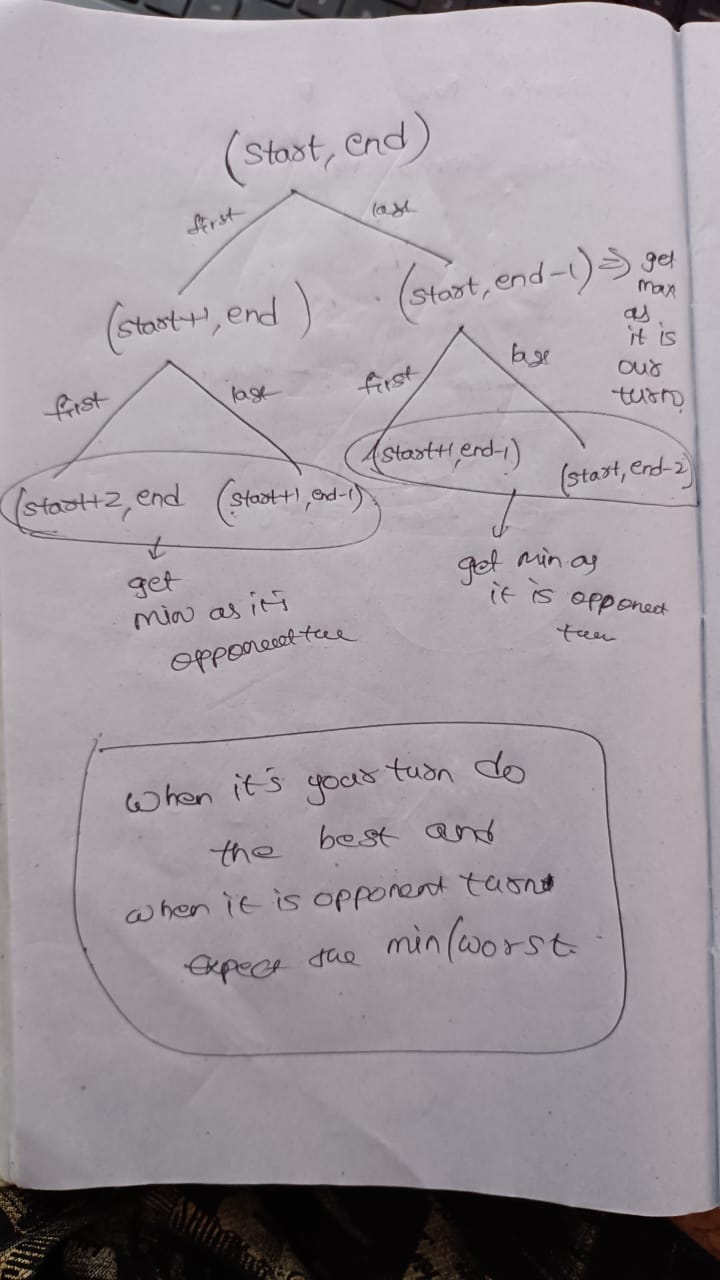 (start, end)
first
last
(start+1, end)
(start, end-1) => get
max
as
it is
our
turn
first
last
first
last
(start+2, end
(start+1, end-1)
(start+1, end-1)
(start, end-2)
get
min as it's
opponent
get min as
it is opponent
when it's your turn do
the best and
when it is opponent turn
expect the min/worst.